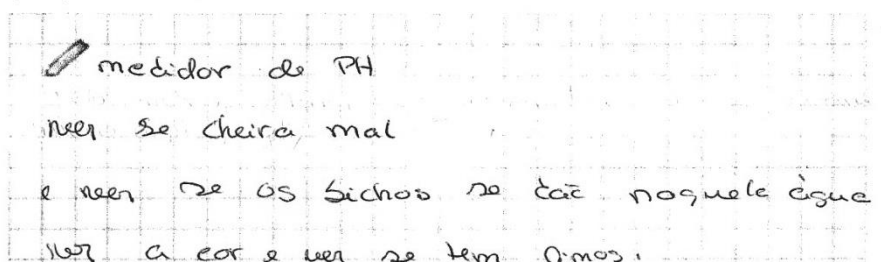 medidor de PH
ver se cheira mal
e ver se os bichos se naquela água
ver a cor e ver se tem